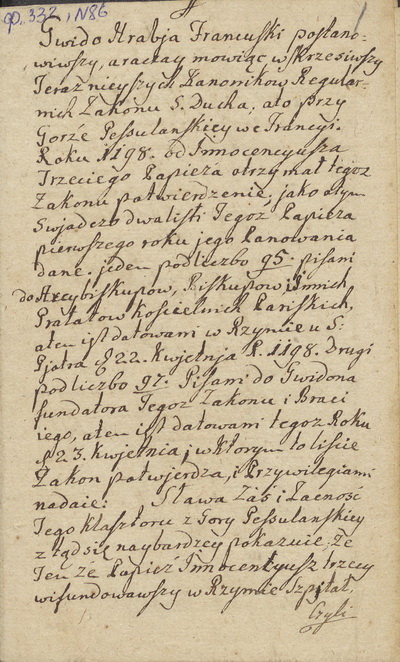 ф. 332, N86
1
Gwido Hrabja Francuski postano-
wiwszy, a raczay mowiąc wskrzesiwszy
Teraznieyszych Kanonikow Regular-
nich Zakonu S. Ducha, ato przy
Gorze Pessulanskiey we Francyi.
Roku 1198. od Innocencyusza
Trzeciego Papieza otrzymał tegoz
Zakonu potwierdzenie, jako o tym
Swjadczo dwa listi Tegoz Papieza
pierwszego roku jego Panowania
dane. jeden pod liczbo 95. pisani
do Arcybiskupow, Biskupow i innich
Prałatow Koscielnich Pariskich,
a ten ist datowani w Rzymie u S:
Pjotra d 22. Kwjetnja R. 1198. Drugi
pod liczbo 97. Pisani do Gwidona
fundatora Tegoz Zakonu i Braci
iego, a ten ist datowani tegoz Roku
d 23. Kwjetnia, w ktorym to liscie
Zakon potwjerdza, i Przywilegiami
nadaie: Sława Zaś i Zacność
Tego Klasztoru z Gory Pessulanskiey
z tąd się naybardzey pokazuie, Ze
Ten Ze Papiez Innocentyusz trzeci
wifundowawszy w Rzymie Szpitał,
Czyli